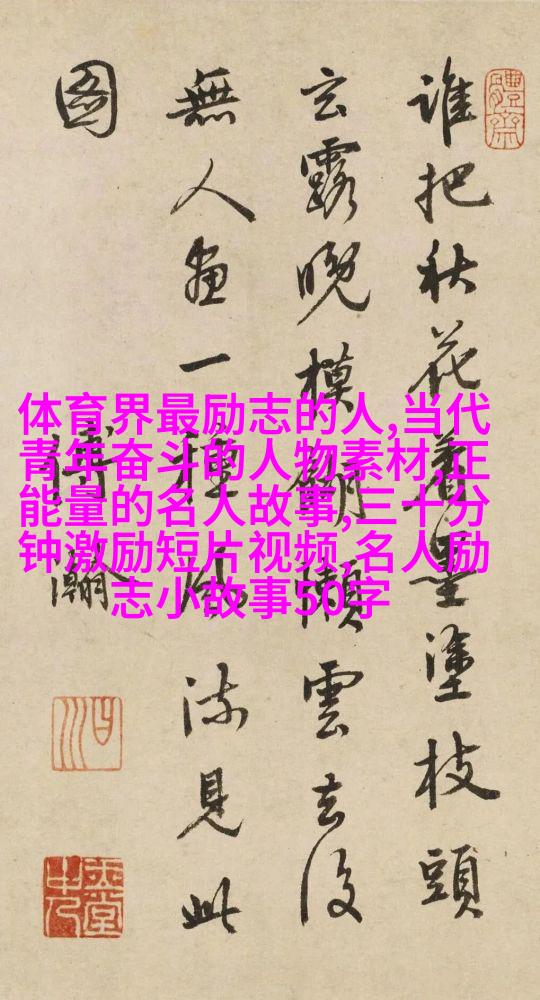 體齋
誰把秋花着墨塗枝頭
玄露晚模糊雲去後
無人畫一種風流見此
圖
傅瀚
曰川
體育界最励志的人,当代
青年奋斗的人物素材,正
能量的名人故事,三十分
钟激励短片视频,名人励
志小故事50字